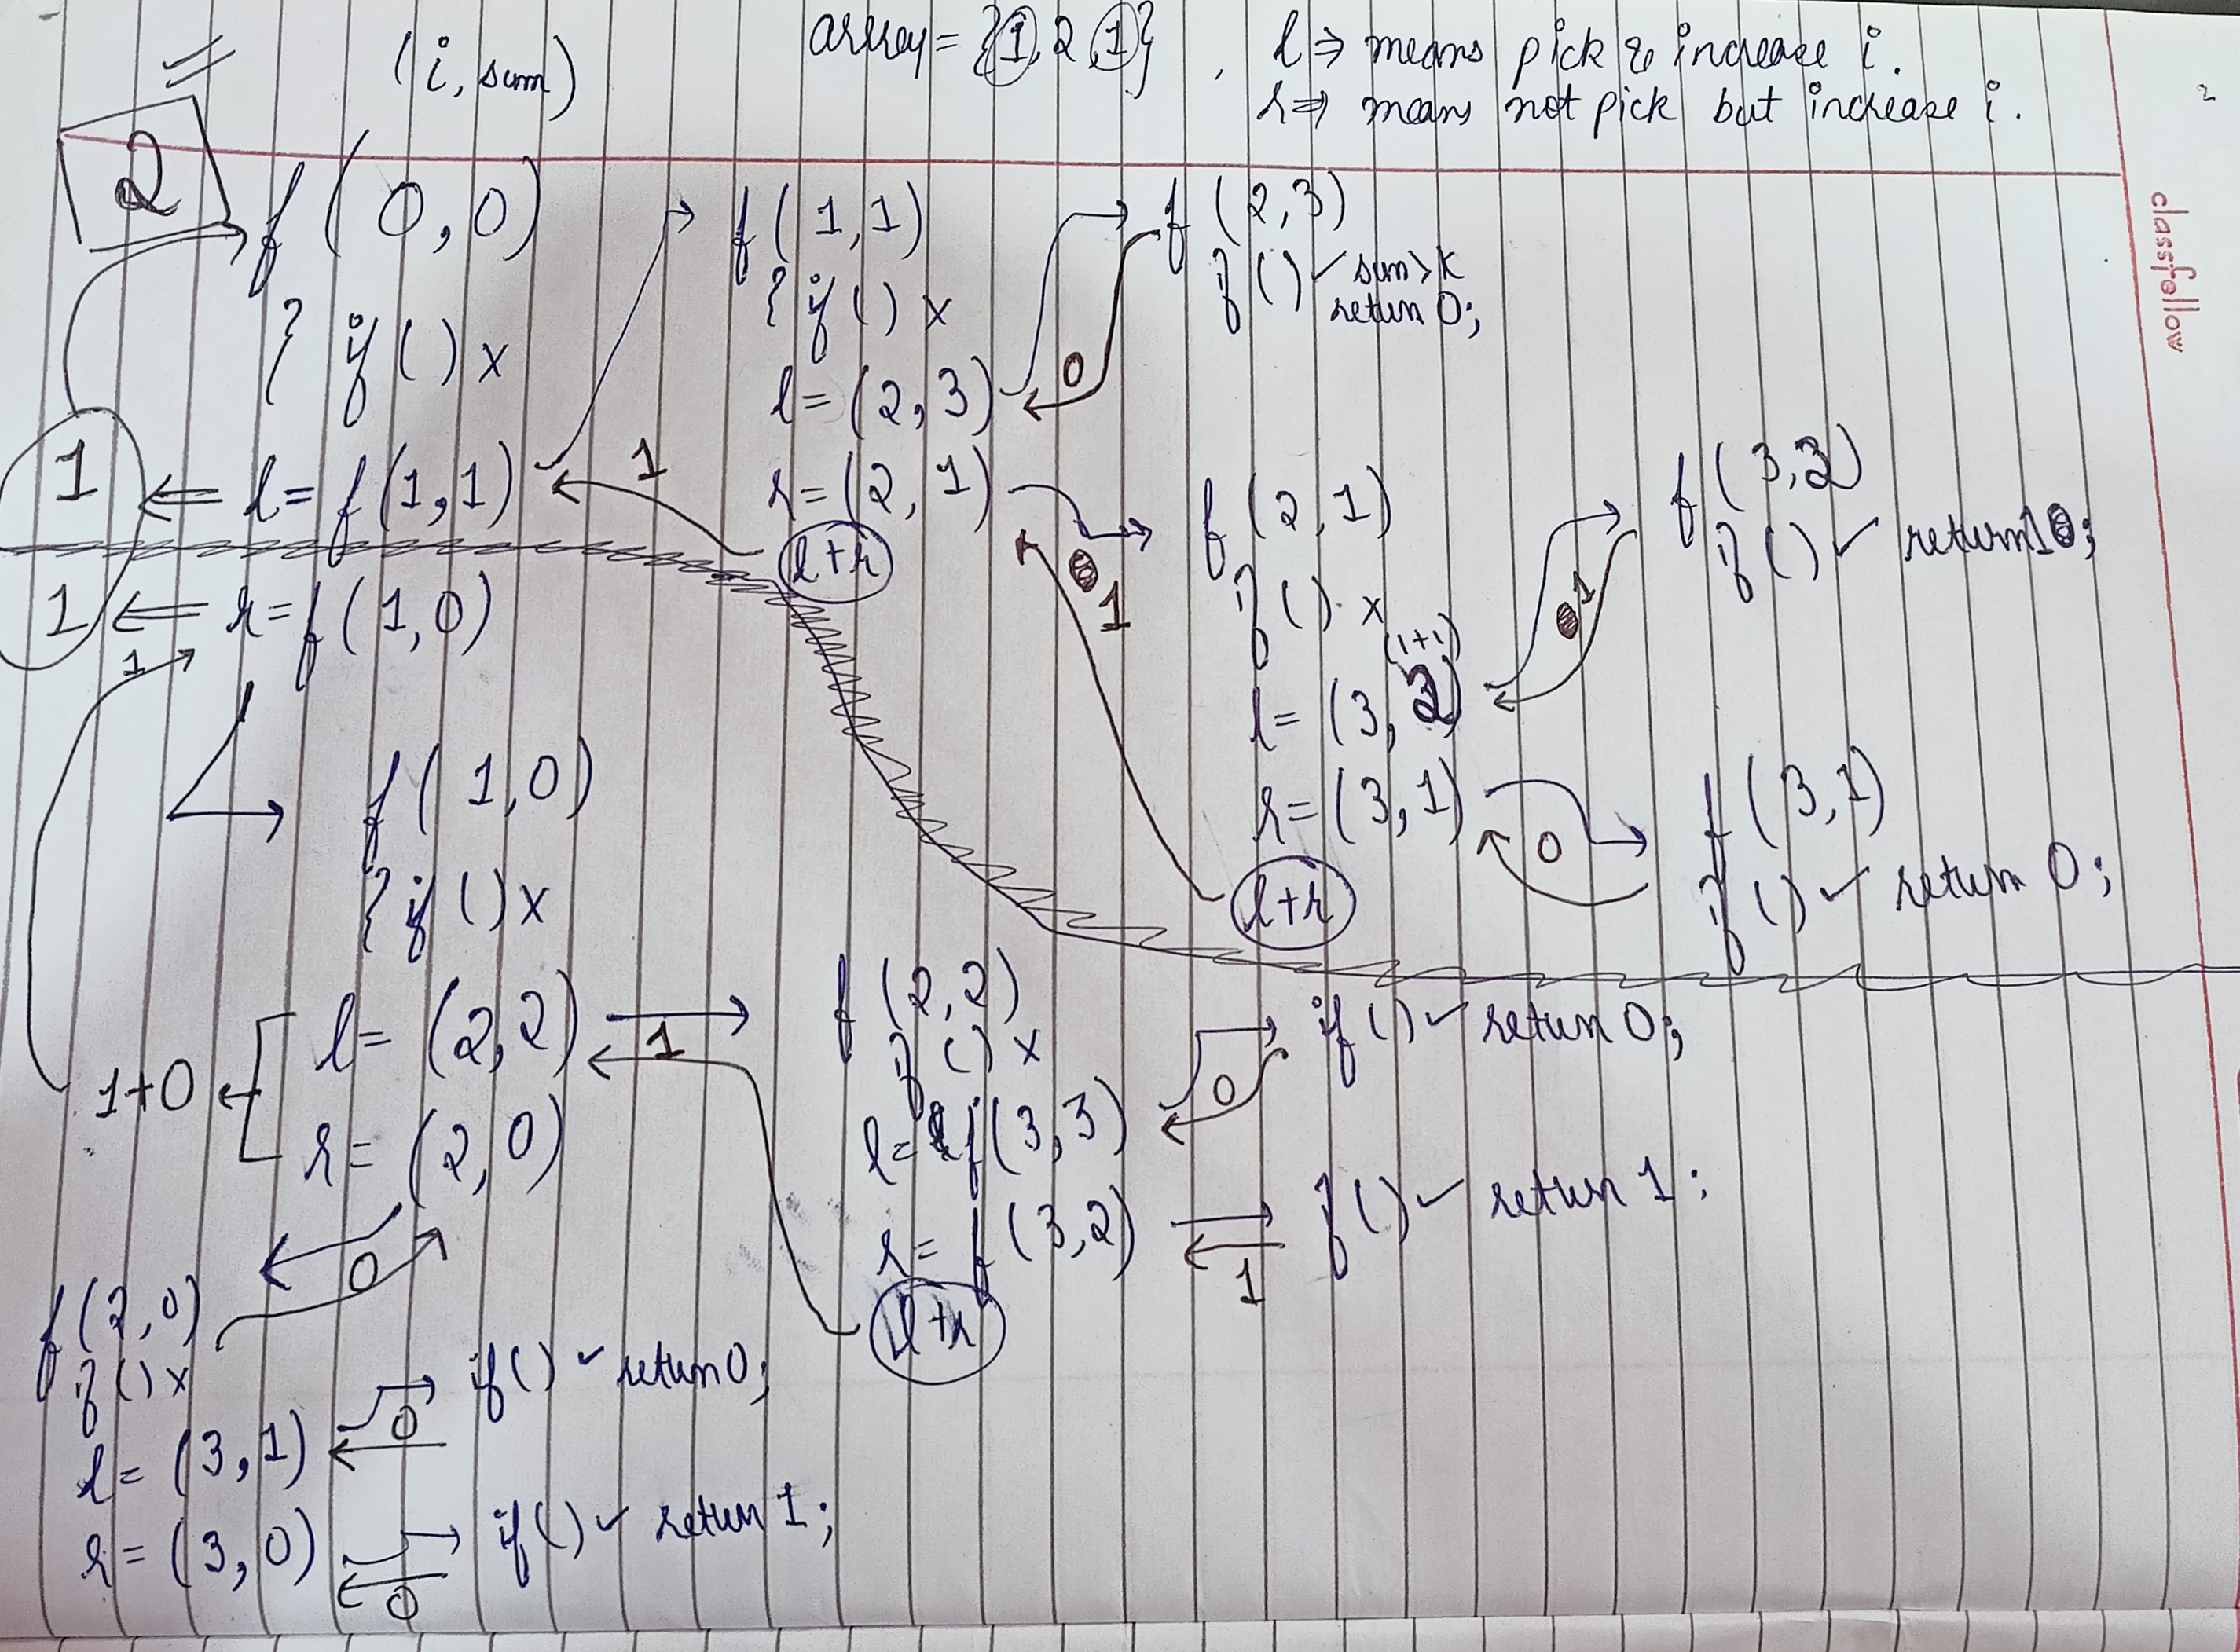 array = {1, 2, 1} , l ⇒ means pick & increase i.
(i, sum)
r ⇒ means not pick but increase i.
2
classfellow
2
f (0,0)
{ if () x
l = f(1,1)
1
1
r = f(1,0)
1
1
f(1,1)
{ if () x
l = (2,3)
r = (2,1)
l+r
0
f (2,3)
if () ✓ sum>k
return 0;
f (2,1)
if () x
(1+1)
l = (3, 2)
r = (3,1)
l+r
1
f (3,2)
if () ✓ return 1;
1
f (3,1)
if () ✓ return 0;
0
f(1,0)
{ if () x
l = (2,2)
r = (2,0)
1+0
1
f (2,2)
if () x
l = f(3,3)
r = f(3,2)
l+r
if () ✓ return 0;
0
if () ✓ return 1;
1
0
f(2,0)
if () x
l = (3,1)
r = (3,0)
if () ✓ return 0;
0
if () ✓ return 1;
0